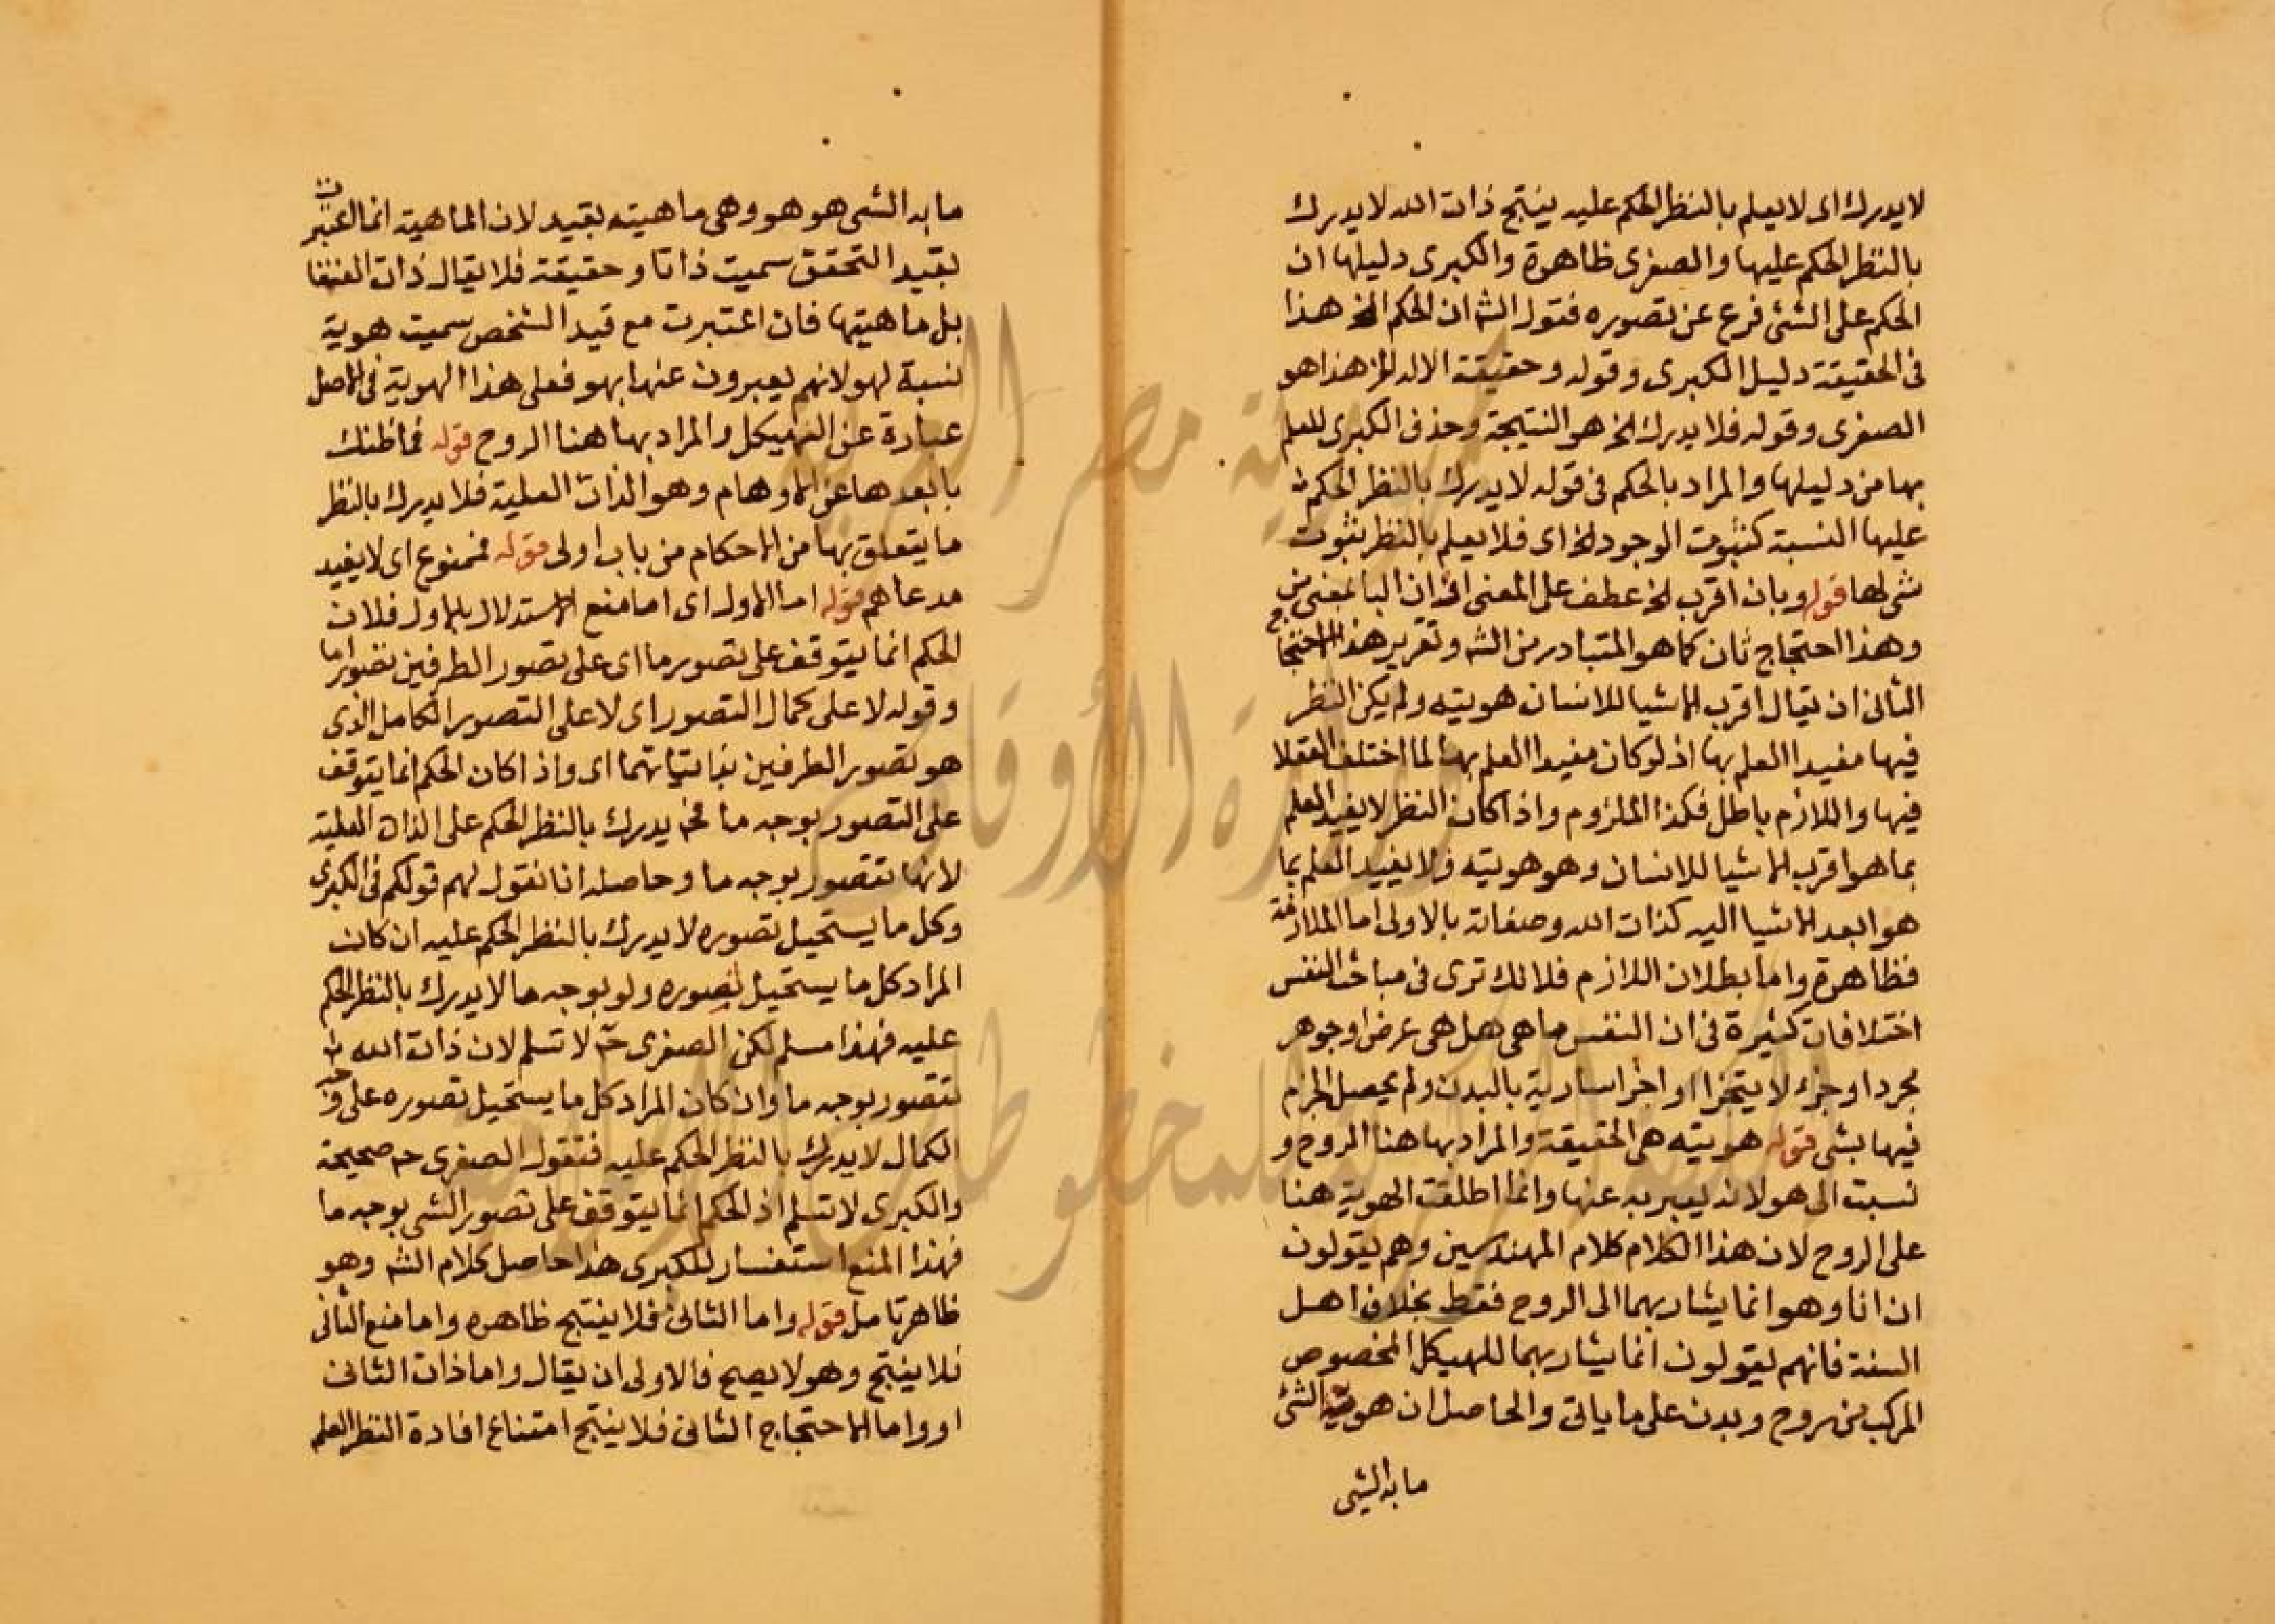 لا يدرك اى لا يعلم بالنظر الحكم عليه ينتج ذات الله لا يدرك
بالنظر الحكم عليها والصغرى ظاهرة والكبرى دليلها ان
الحكم على الشئ فرع عن تصوره فقول الشه ان الحكم الخ هذا
فى الحقيقة دليل الكبرى وقوله وحقيقة الاله الخ هذا هو
الصغرى وقوله فلا يدرك الخ هو النتيجة وحذف الكبرى للعلم
بها من دليلها والمراد بالحكم فى قوله لا يدرك بالنظر الحكم
عليها النسبة كثبوت الوجود الخ اى فلا يعلم بالنظر ثبوت
شى لها قوله وبان اقرب الخ عطف على المعنى اذ ان البا بمعنى من
وهذا احتجاج ثان كما هو المتبادر من الشه وتقرير هذا الاحتجاج
الثانى ان يقال اقرب الاشيا للانسان هويته ولم يكن النظر
فيها مفيدا العلم بها اذ لو كان مفيدا العلم بها لما اختلف العقلا
فيها واللازم باطل فكذا الملزوم واذا كان النظر لا يفيد العلم
بما هو اقرب الاشيا للانسان وهو هويته فلا يفيد العلم بما
هو ابعد الاشيا اليه كذات الله وصفاته بالاولى اما الملازمة
فظاهرة واما بطلان اللازم فلانك ترى فى مباحث النفس
اختلافات كثيرة فى ان النفس ما هى هل هى عرض او جوهر
مجرد او جزء لا يتجزا او اجزا سارية بالبدن ولم يحصل الجزم
فيها بشى قوله هويته هى الحقيقة والمراد بها هنا الروح و
نسبت الى هو لانه يعبر به عنها وانما اطلقت الهوية هنا
على الروح لان هذا الكلام كلام المهندسين وهم يقولون
ان انا وهو انما يشار بهما الى الروح فقط بخلاف اهل
السنة فانهم يقولون انما يشار بهما للهيكل المخصوص
المركب من روح وبدن على ما ياتى والحاصل ان هوية الشئ
ما به الشيى
ما به الشى هو هو وهى ماهيته بقيد لان الماهية انما اعتبرت
بقيد التحقق سميت ذاتا وحقيقة فلا يقال ذات العنقا
بل ماهيتها فان اعتبرت مع قيد الشخص سميت هوية
نسبة لهو لانهم يعبرون عنها بهو فعلى هذا الهوية فى الاصل
عبارة عن الهيكل والمراد بها هنا الروح قوله فما ظنك
بابعدها عن الاوهام وهو الذات العلية فلا يدرك بالنظر
ما يتعلق بها من الاحكام من باب اولى قوله فممنوع اى لا يفيد
مدعاهم قوله اما الاول اى اما منع الاستدلال بالاول فلان
الحكم انما يتوقف على تصور ما اى على تصور الطرفين تصورا ما
وقوله لا على كمال التصور اى لا على التصور الكامل الذى
هو تصور الطرفين بذاتياتهما اى واذا كان الحكم انما يتوقف
على التصور بوجه ما فح يدرك بالنظر الحكم على الذات العلية
لانها تتصور بوجه ما وحاصله انا نقول لهم قولكم فى الكبرى
وكل ما يستحيل تصوره لا يدرك بالنظر الحكم عليه ان كان
المراد كل ما يستحيل تصوره ولو بوجه ما لا يدرك بالنظر الحكم
عليه فهذا مسلم لكن الصغرى ح لا تسلم لان ذات الله
تتصور بوجه ما وان كان المراد كل ما يستحيل تصوره على وجه
الكمال لا يدرك بالنظر الحكم عليه فتقول الصغرى ح صحيحة
والكبرى لا تسلم اذ الحكم انما يتوقف على تصور الشى بوجه ما
فهذا المنع استفسار للكبرى هذا حاصل كلام الشه وهو
ظاهر تامل قوله واما الثانى فلا ينتج ظاهره واما منع الثانى
فلا ينتج وهو لا يصح فالاولى ان يقال واما ذات الثانى
او واما الاحتجاج الثانى فلا ينتج امتناع افادة النظر العلم